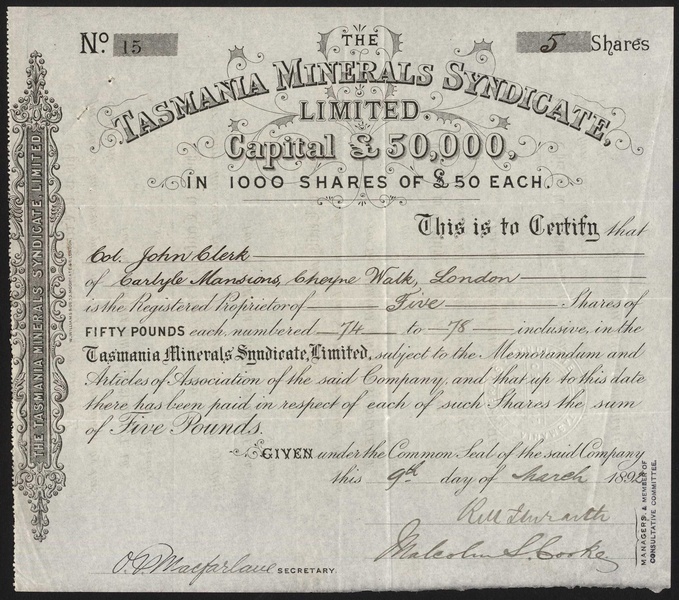 No. 15
5 Shares
THE
TASMANIA MINERALS SYNDICATE,
LIMITED.
Capital £50,000,
IN 1000 SHARES OF £50 EACH.
This is to Certify that
Col. John Clerk
of Carlyle Mansions, Cheyne Walk, London
is the Registered Proprietor of Five Shares of
FIFTY POUNDS each, numbered 74 to 78 inclusive, in the
Tasmania Minerals Syndicate, Limited, subject to the Memorandum and
Articles of Association of the said Company, and that up to this date
there has been paid in respect of each of such Shares the sum
of Five Pounds.
GIVEN under the Common Seal of the said Company
this 9th day of March 189
Malcolm S. Cooke
MANAGERS & MEMBER OF
CONSULTATIVE COMMITTEE.
O. D. Macfarlane SECRETARY.
THE TASMANIA MINERALS SYNDICATE, LIMITED.